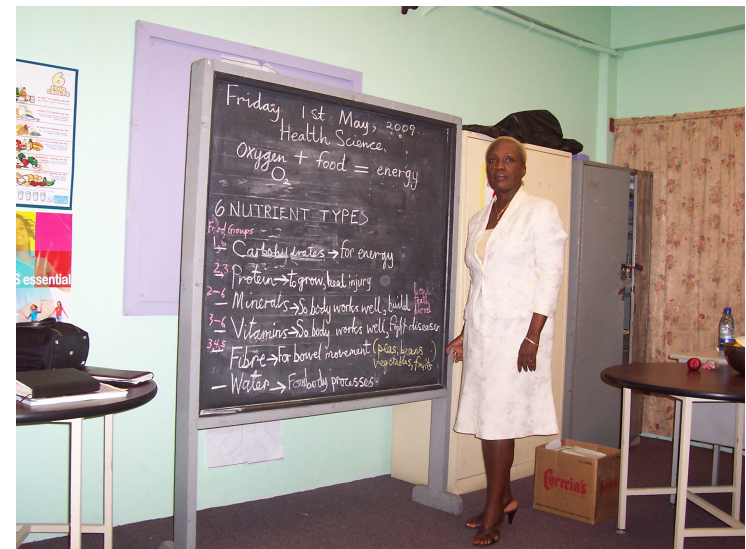 Friday 1st May, 2009.
Health Science.
Oxygen + food = energy
O2
6 NUTRIENT TYPES
Food Groups
1, Carbohydrates → for energy
2,3 Protein → to grow, heal injury
2-6 Minerals → So body works well, build bone, teeth, blood
3-6 Vitamins → So body works well, fight diseases
3,4,5 Fibre → for bowel movement (peas, beans
vegetables, fruits)
— Water → For body processes
6
S essential
Correia's